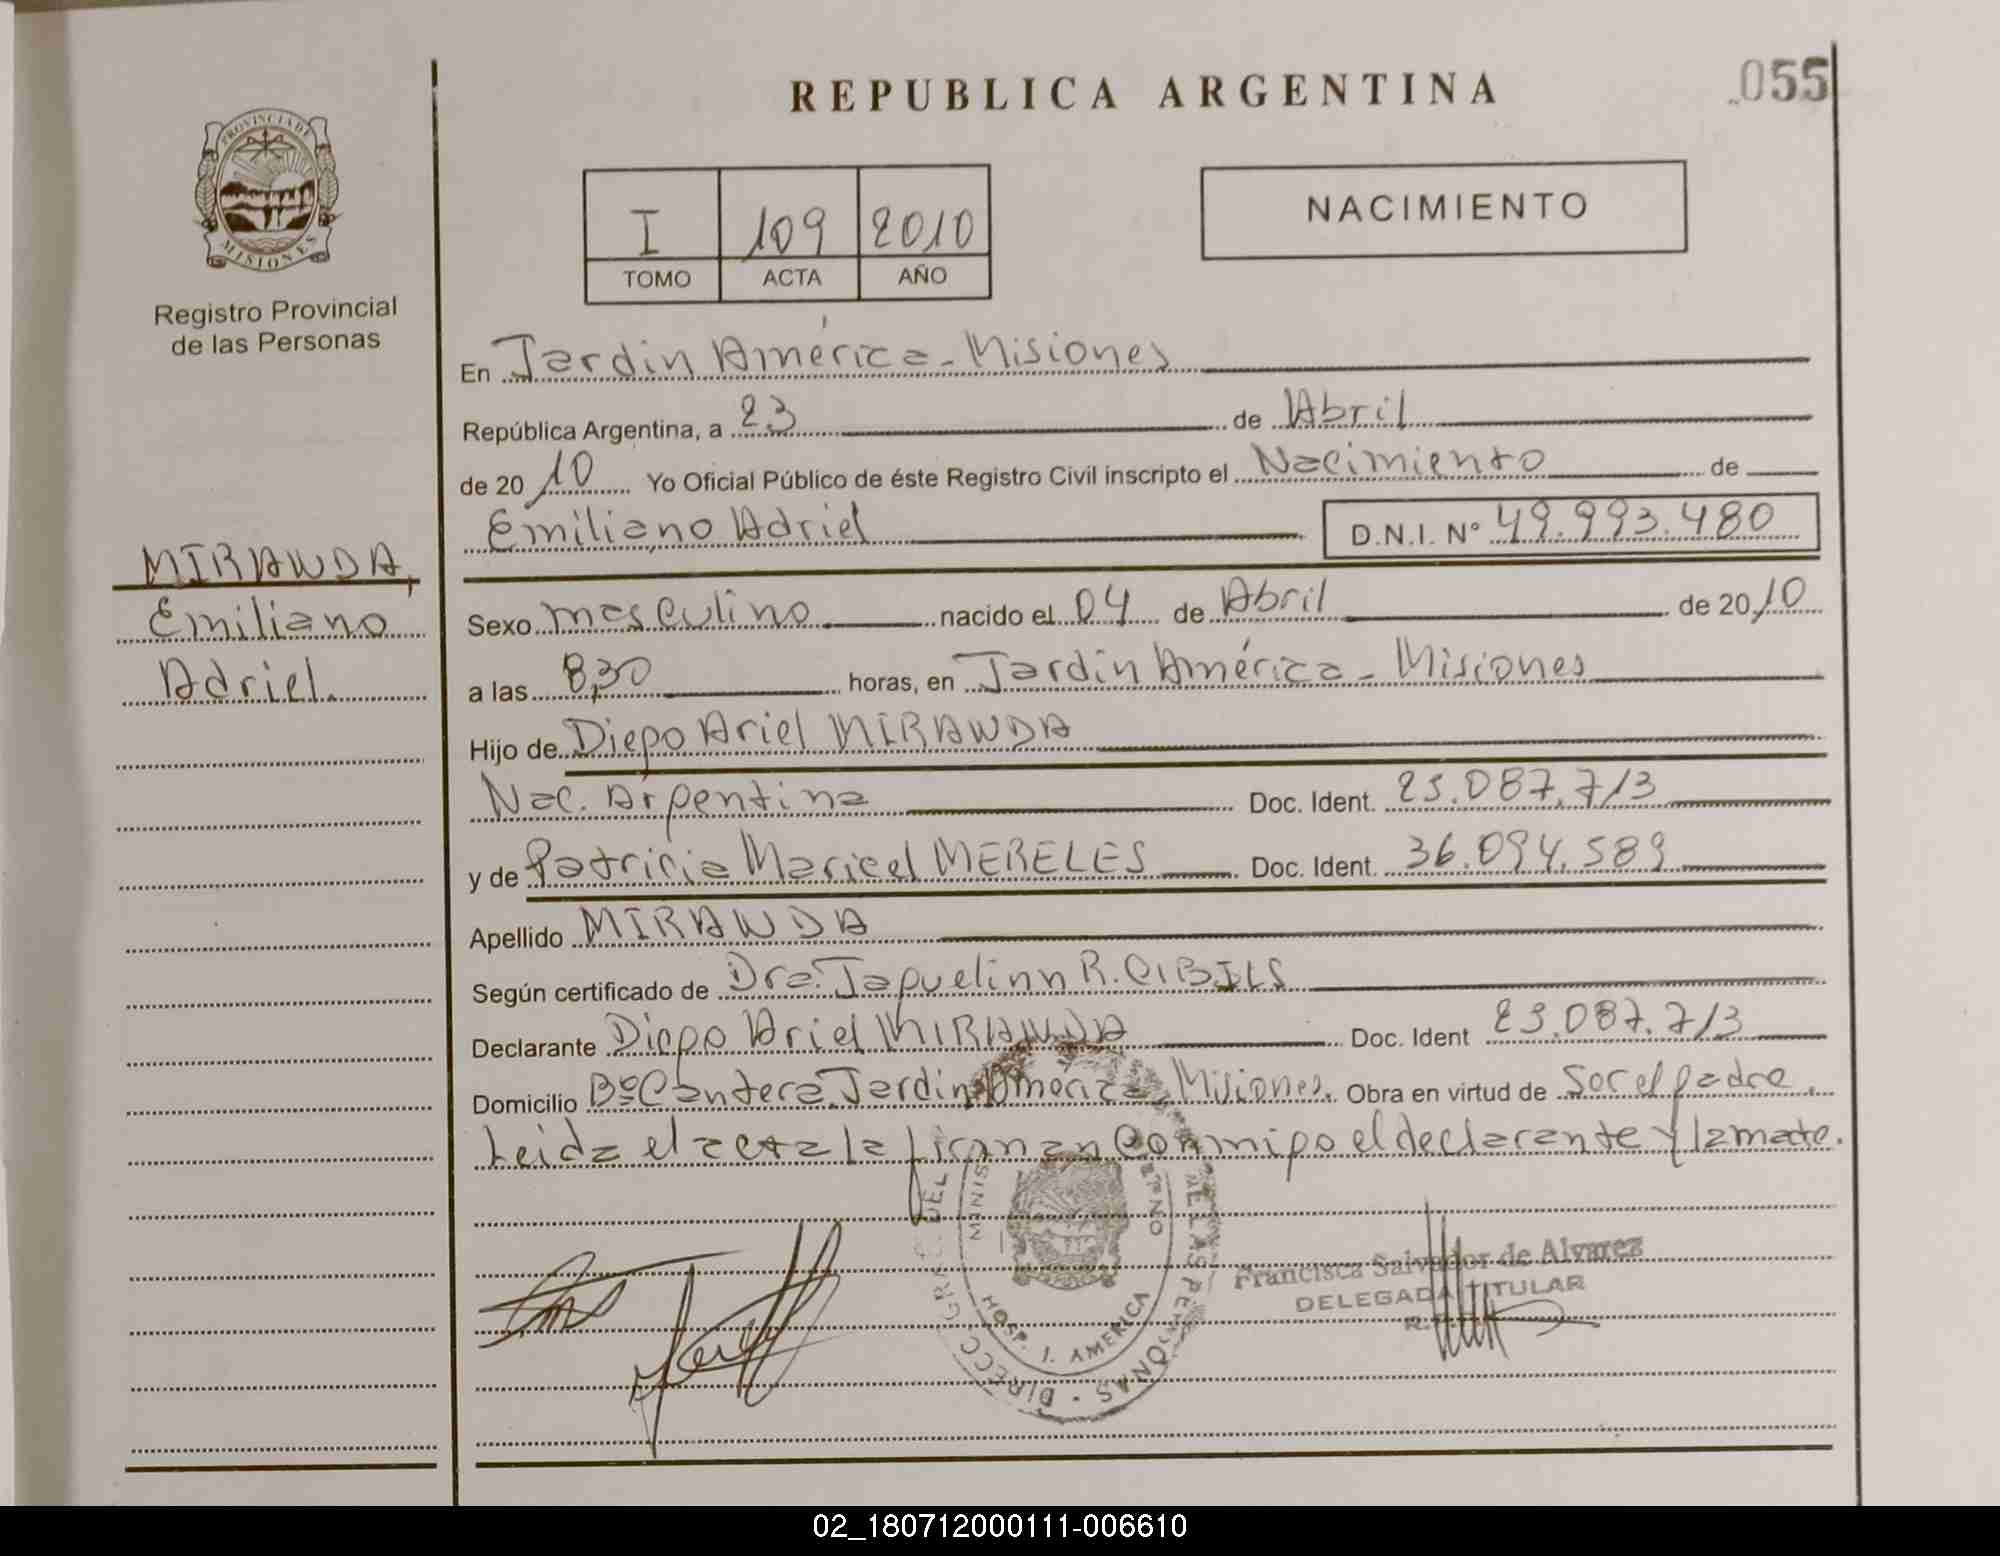 REPUBLICA ARGENTINA
055
PROVINCIA DE MISIONES
Registro Provincial
de las Personas
I 109 2010
TOMO ACTA AÑO
NACIMIENTO
En Jardín América - Misiones
República Argentina, a 23 de Abril
de 2010 Yo Oficial Público de éste Registro Civil inscripto el Nacimiento de
Emiliano Adriel D.N.I. Nº 49.993.480
MIRANDA,
Emiliano
Adriel.
Sexo masculino nacido el 04 de Abril de 2010
a las 8,30 horas, en Jardín América - Misiones
Hijo de Diego Ariel MIRANDA
Nac. Argentina Doc. Ident. 23.087.713
y de Patricia Maricel MERELES Doc. Ident. 36.094.589
Apellido MIRANDA
Según certificado de Dra. Jaquelinn R. CIBILS
Declarante Diego Ariel MIRANDA Doc. Ident 23.087.713
Domicilio Bº Cantera. Jardín América Misiones. Obra en virtud de Ser el padre.
Leida el acta la firman Conmigo el declarante y la madre.
HOSP. J. AMERICA
Francisca Salvador de Alvarez
DELEGADA TITULAR
02_180712000111-006610